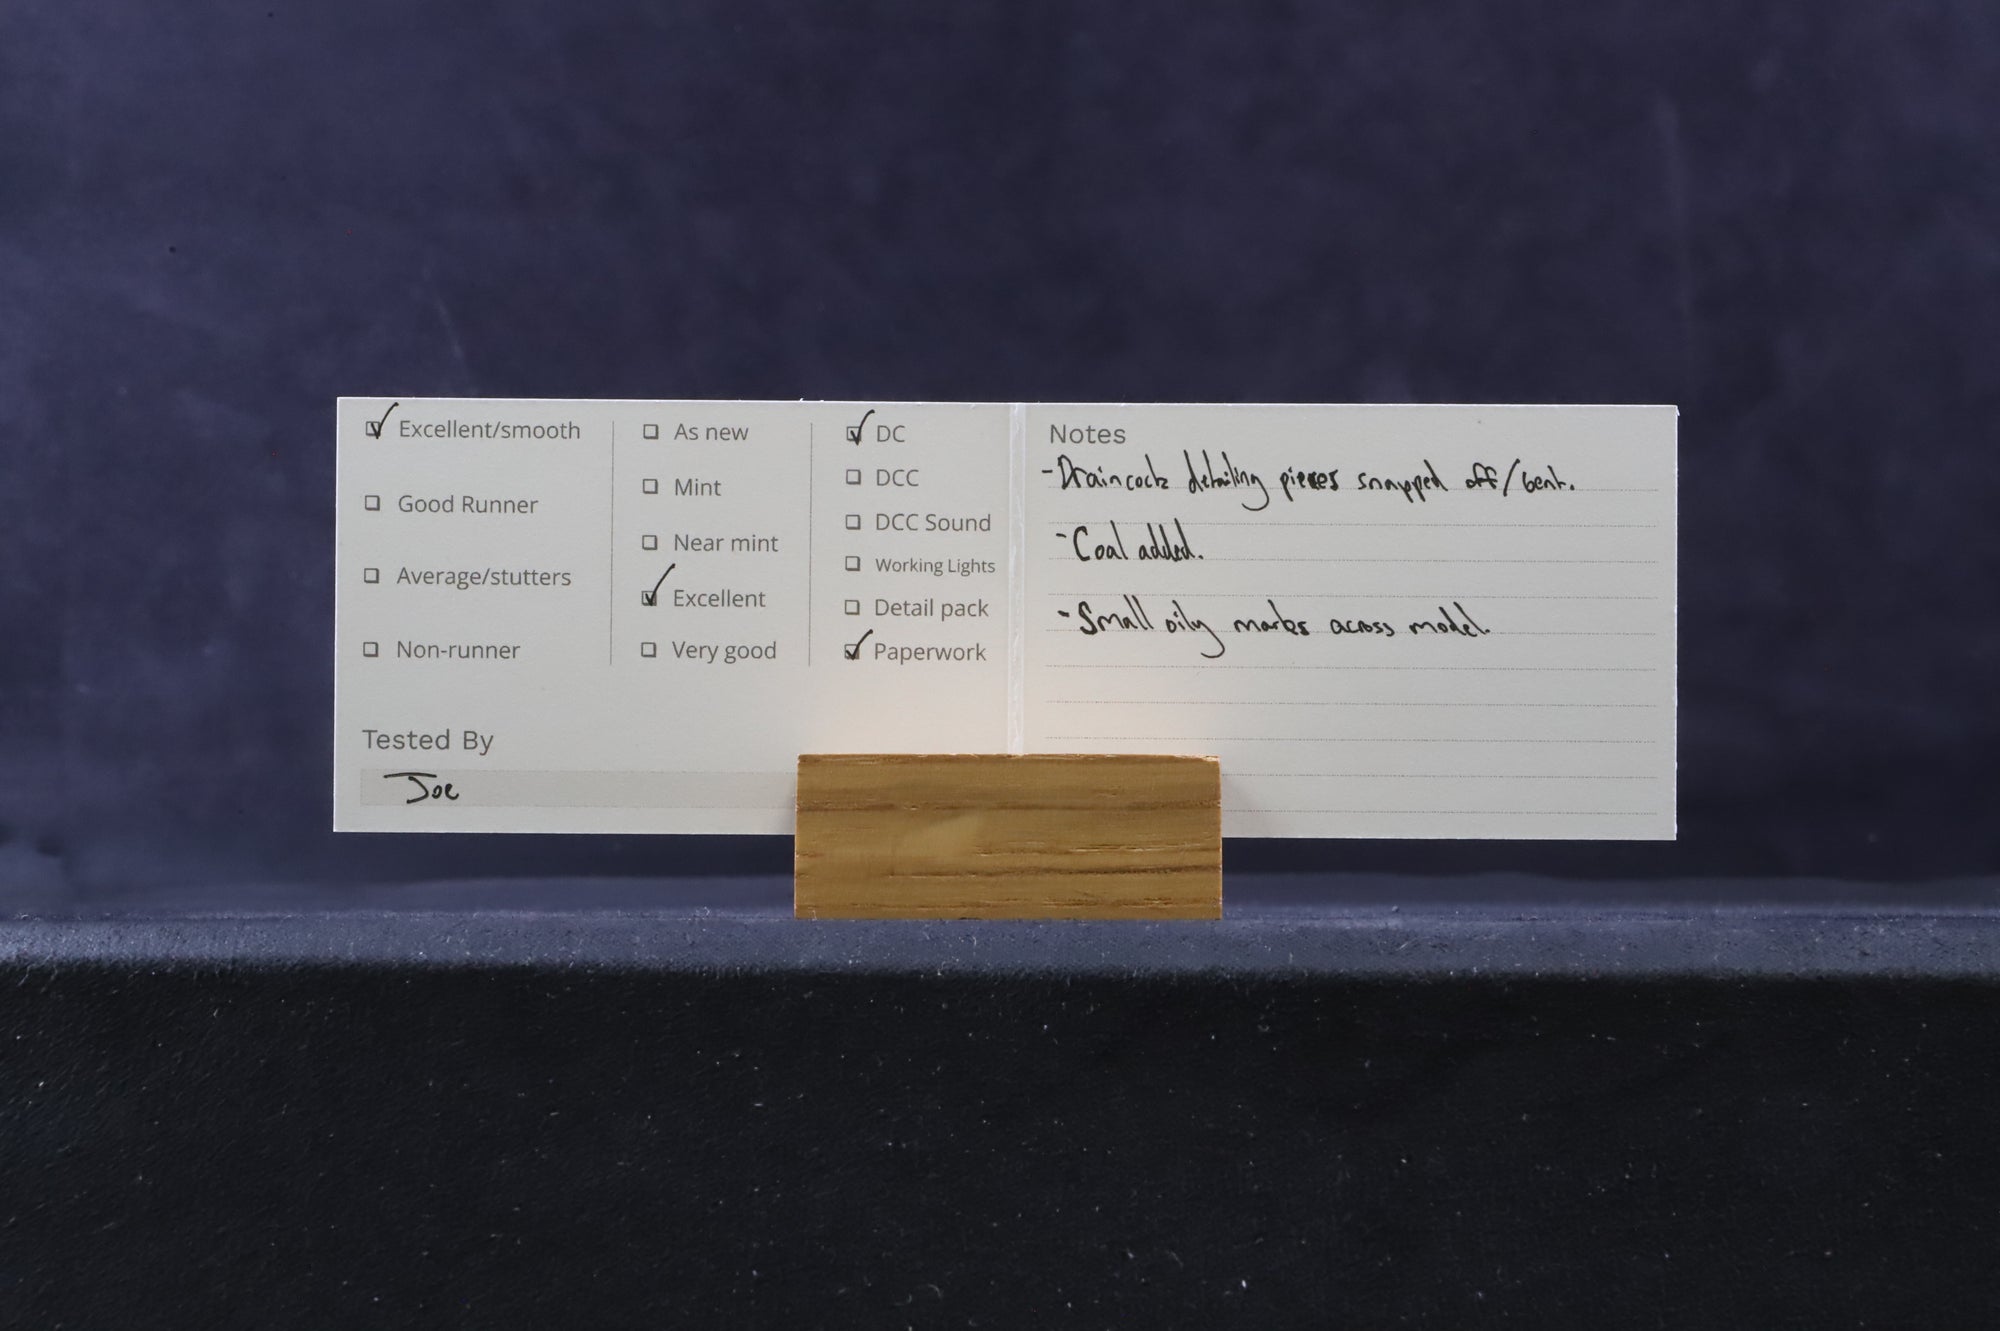 Excellent/smooth
Good Runner
Average/stutters
Non-runner
As new
Mint
Near mint
Excellent
Very good
DC
DCC
DCC Sound
Working Lights
Detail pack
Paperwork
Tested By
Joe
Notes
- Draincock detailing pieces snapped off/bent.
- Coal added.
- Small oily marks across model.